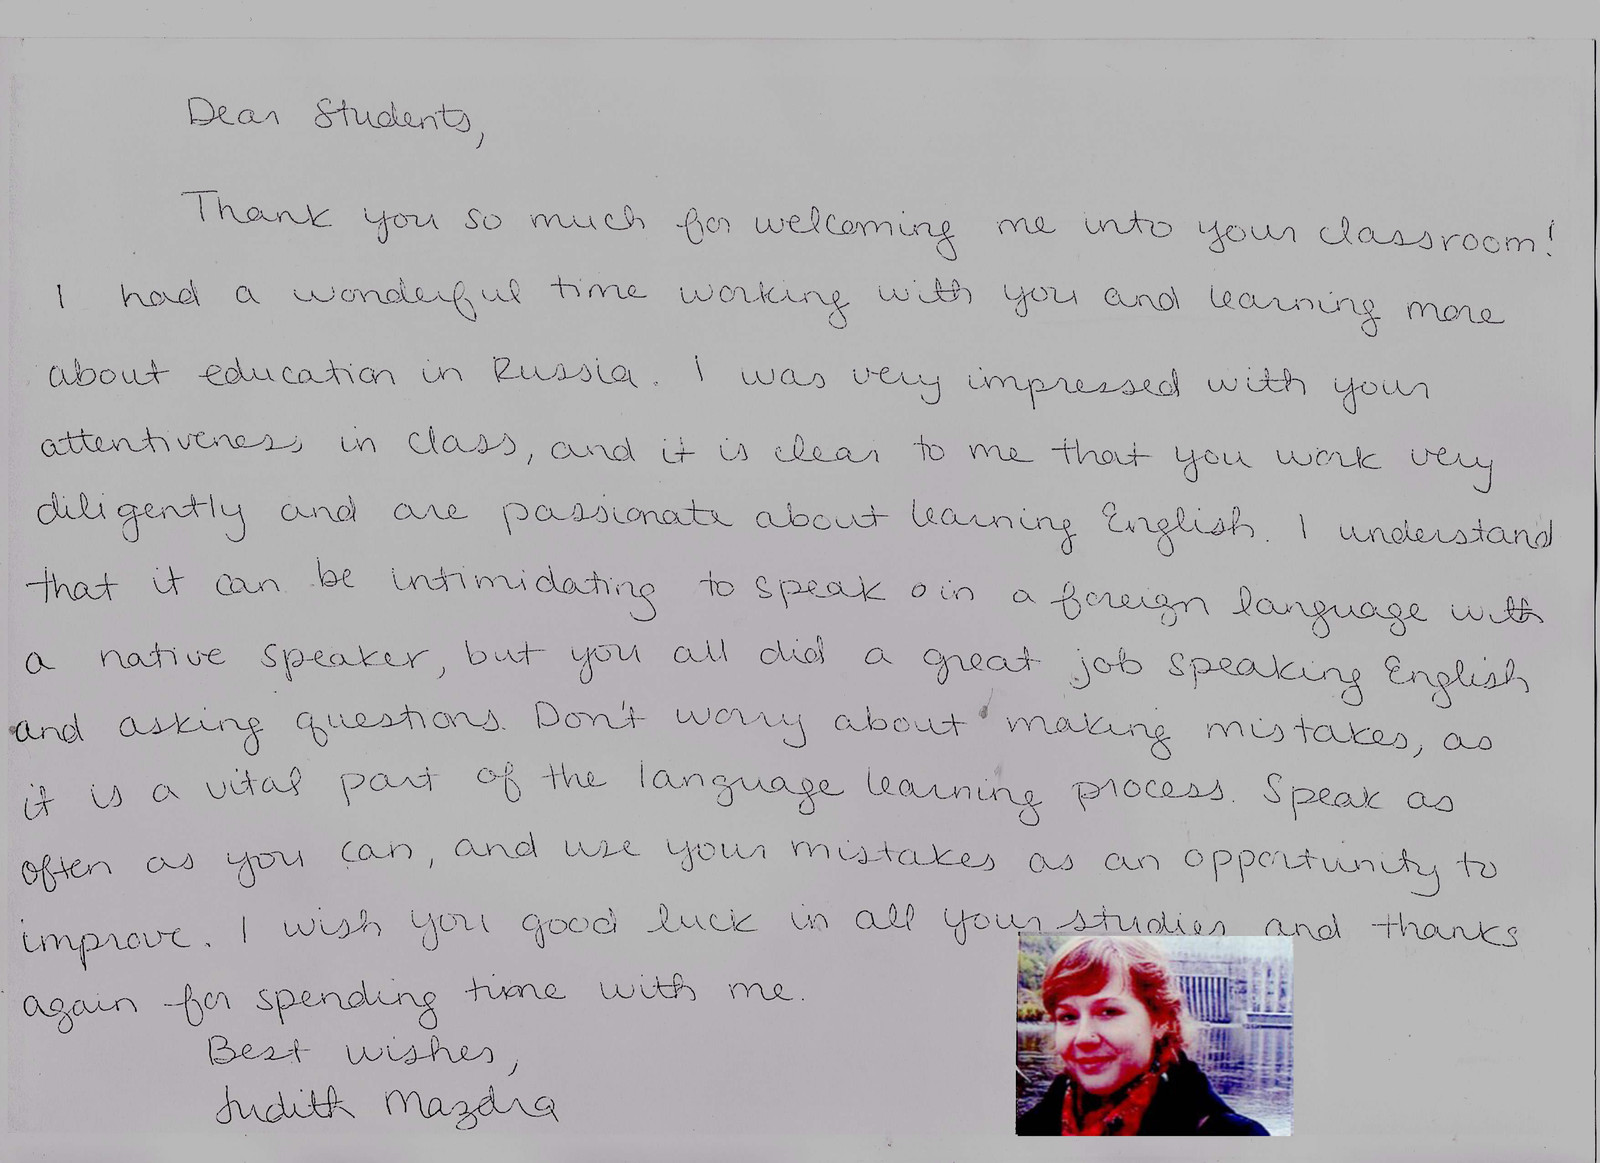 Dear Students,
Thank you so much for welcoming me into your classroom!
I had a wonderful time working with you and learning more
about education in Russia. I was very impressed with your
attentiveness in class, and it is clear to me that you work very
diligently and are passionate about learning English. I understand
that it can be intimidating to speak in a foreign language with
a native speaker, but you all did a great job speaking English
and asking questions. Don't worry about making mistakes, as
it is a vital part of the language learning process. Speak as
often as you can, and use your mistakes as an opportunity to
improve. I wish you good luck in all your studies and thanks
again for spending time with me.
Best wishes,
Judith Mazdra